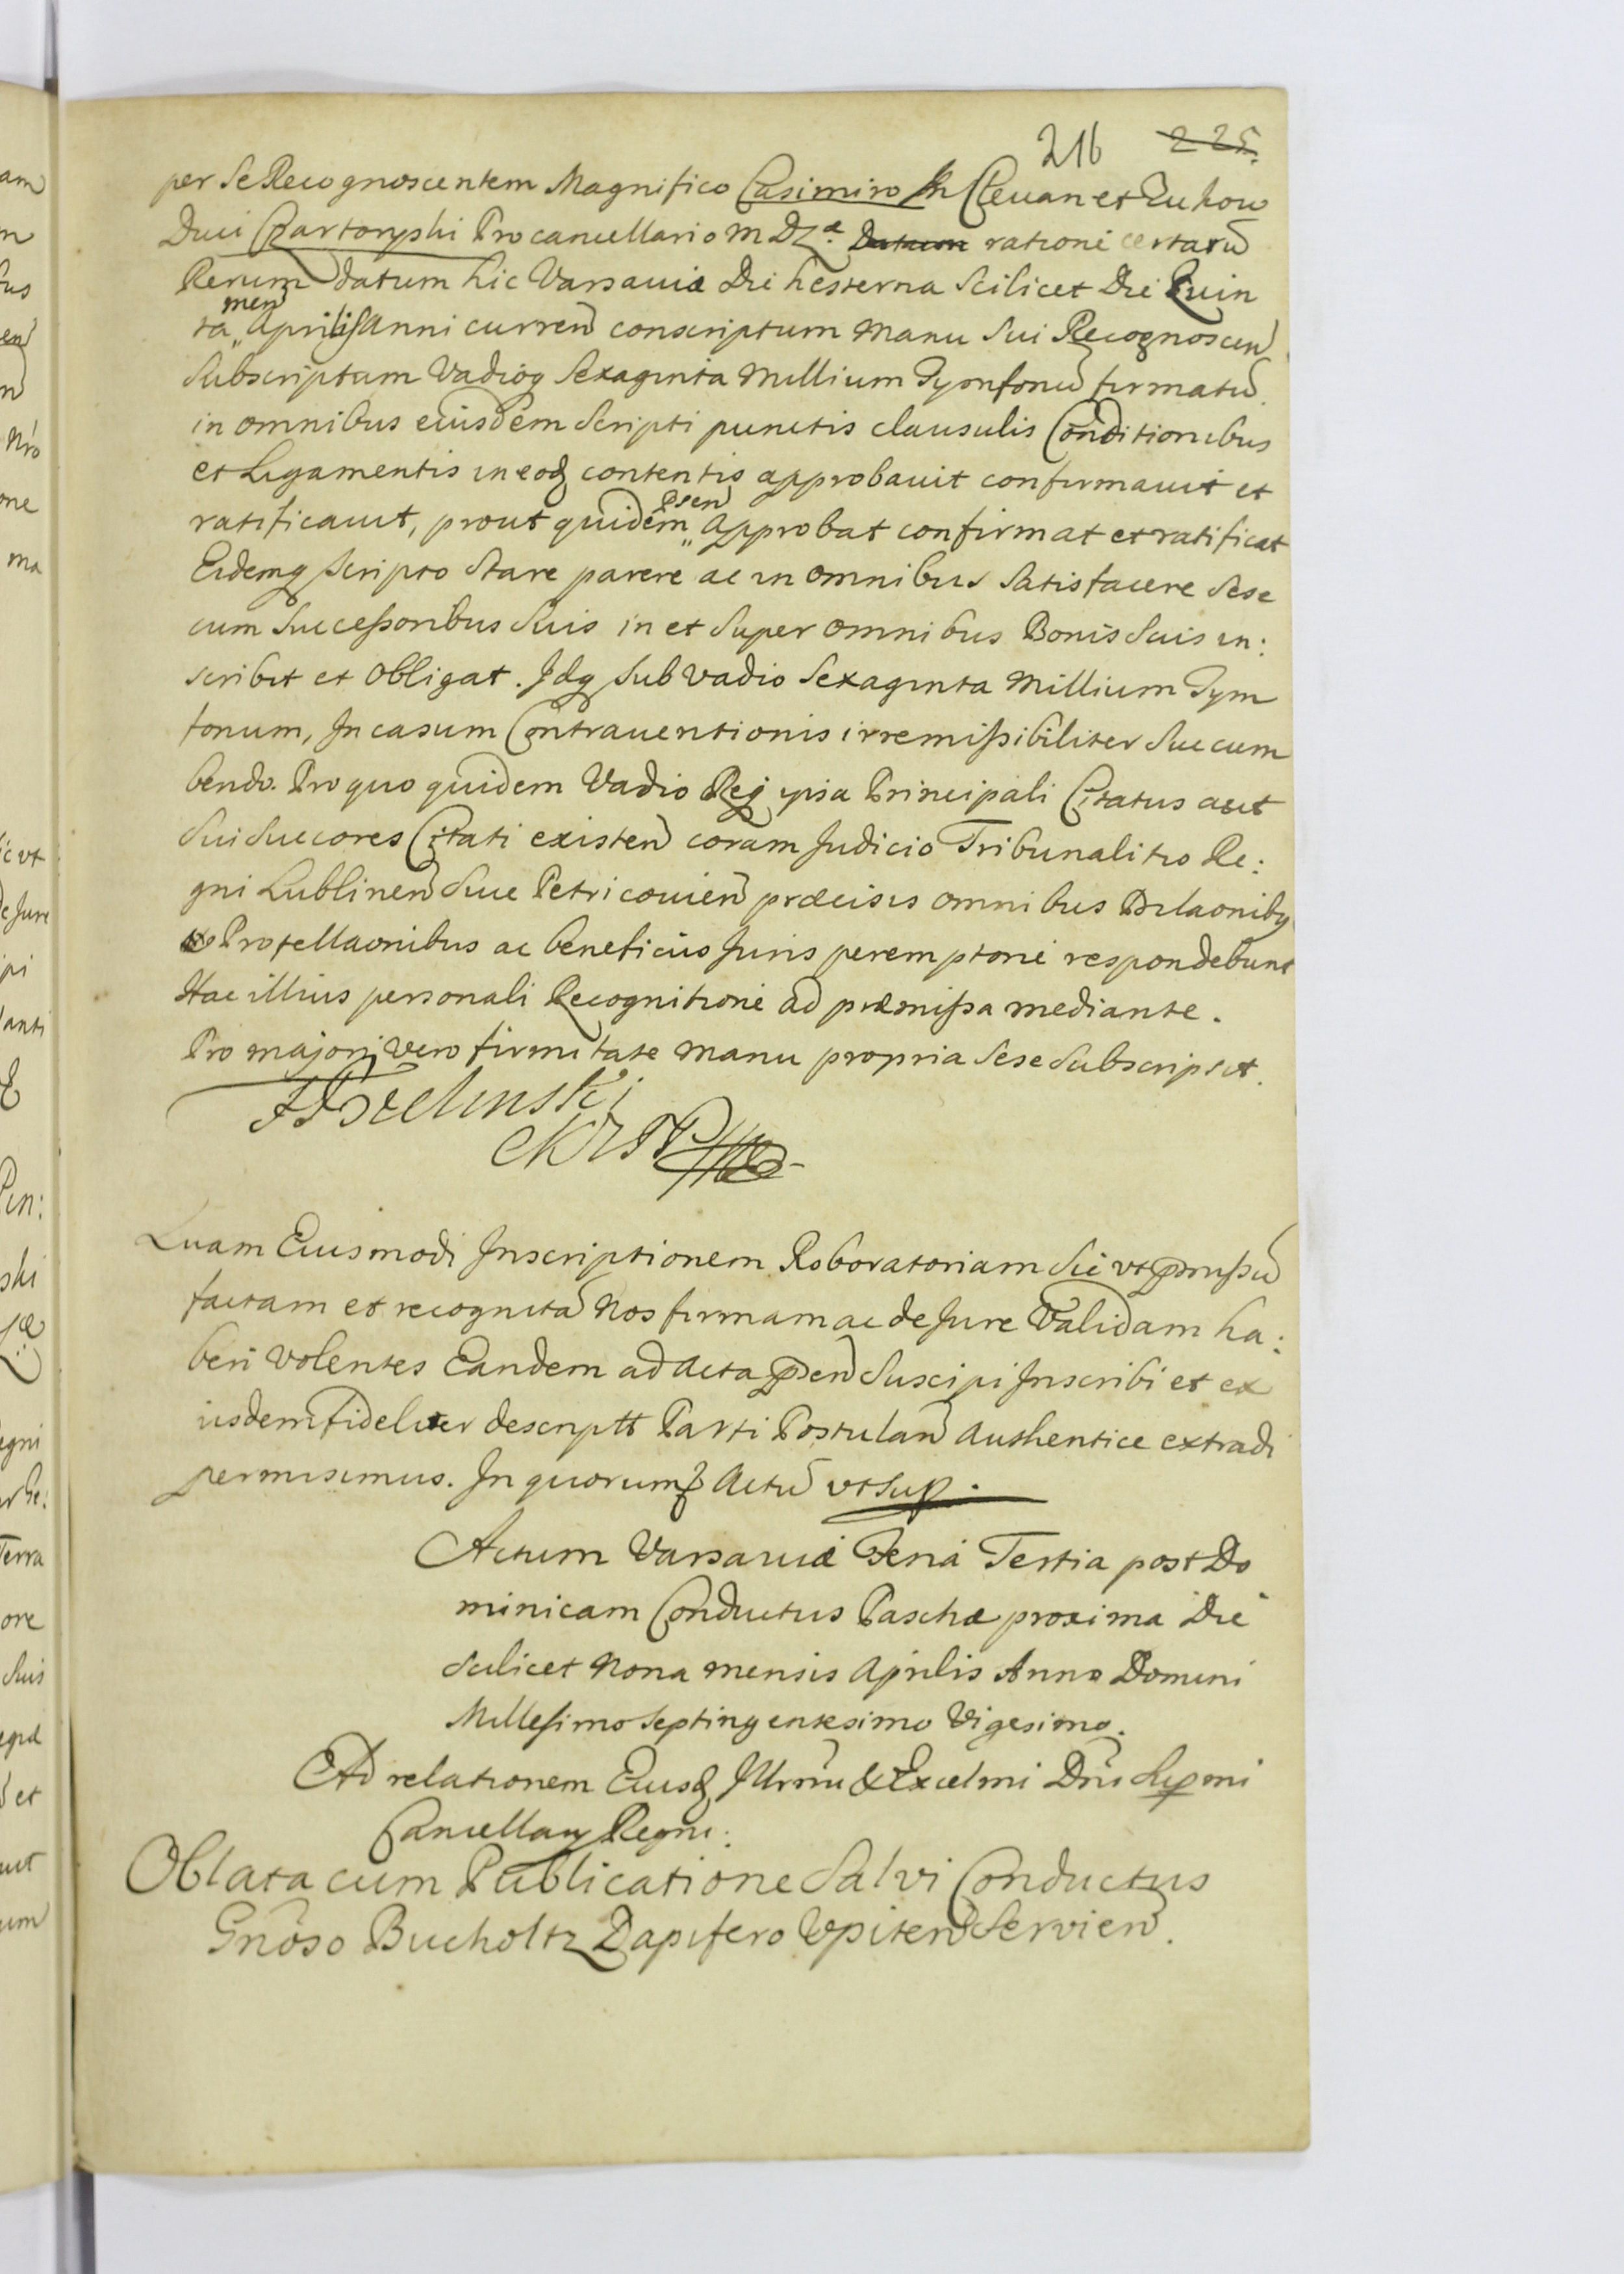 216 225.
per Se Recognoscentem Magnifico Casimiro in Clevan et Zukow
Duci Czartoryski Procancellario M D L. Datum rationè certarũ
Rerum datum hic Varsaviæ Die hesterna Scilicet Die Quin
men
ta Aprilis Anni curren̄ conscriptum Manu Sui Recognoscen̄
Subscriptum Vadioq Sexaginta Millium Tymfonũ firmatũ
in omnibus eiusdem Scripti punctis clausulis Conditionibus
et Ligamentis in eodq contentis approbavit confirmavit et
Psen̄
ratificavit, prout quidem approbat confirmat et ratificat
Eidemq Scripto Stare parere ac in omnibus Satisfacere Sese
cum Successoribus Suis in et Super omnibus Bonis Suis in:
scribit et Obligat. Idq Sub Vadio Sexaginta Millium Tym
fonum, In casum Contraventionis irremissibiliter Succum
bendo. Pro quo quidem Vadio Rej ipsa Principali Citatus aut
Sui Succores Citati existen̄ coram Judicio Tribunalitio Re:
gni Lublinen̄ Sive Petricovien̄ præcisis omnibus Dilaonibq
Protellaonibus ac beneficiis Juris peremptoriè respondebunt
Hac illius personali Recognitionè ad præmissa mediante.
Pro majori vero firmitate Manu propria Sese Subscripsit.
Quam Eiusmodi Inscriptionem Roboratoriam Sic vt pmissũ
factam et recognitã Nos firmam ac de Jure Validam ha:
beri Volentes Eandem ad Acta psen̄ Suscipi Inscribi et ex
iisdem fideliter descriptt Parti Postulan̄ Authentice extradi
permisimus. In quorum Actũ vt Sup.
Actum Varsaviæ Feria Tertia post Do
minicam Conductus Paschæ proxima Die
Scilicet Nona mensis Aprilis Anno Domini
Millesimo Septingentesimo Vigesimo.
Ad relationem Eiusd Illrmi & Excelmi Dni Supmi
Cancellarij Regni.
Oblata cum Publicatione Salvi Conductus
Gnõso Bucholtz Dapifero Vpiten̄ Servien̄.